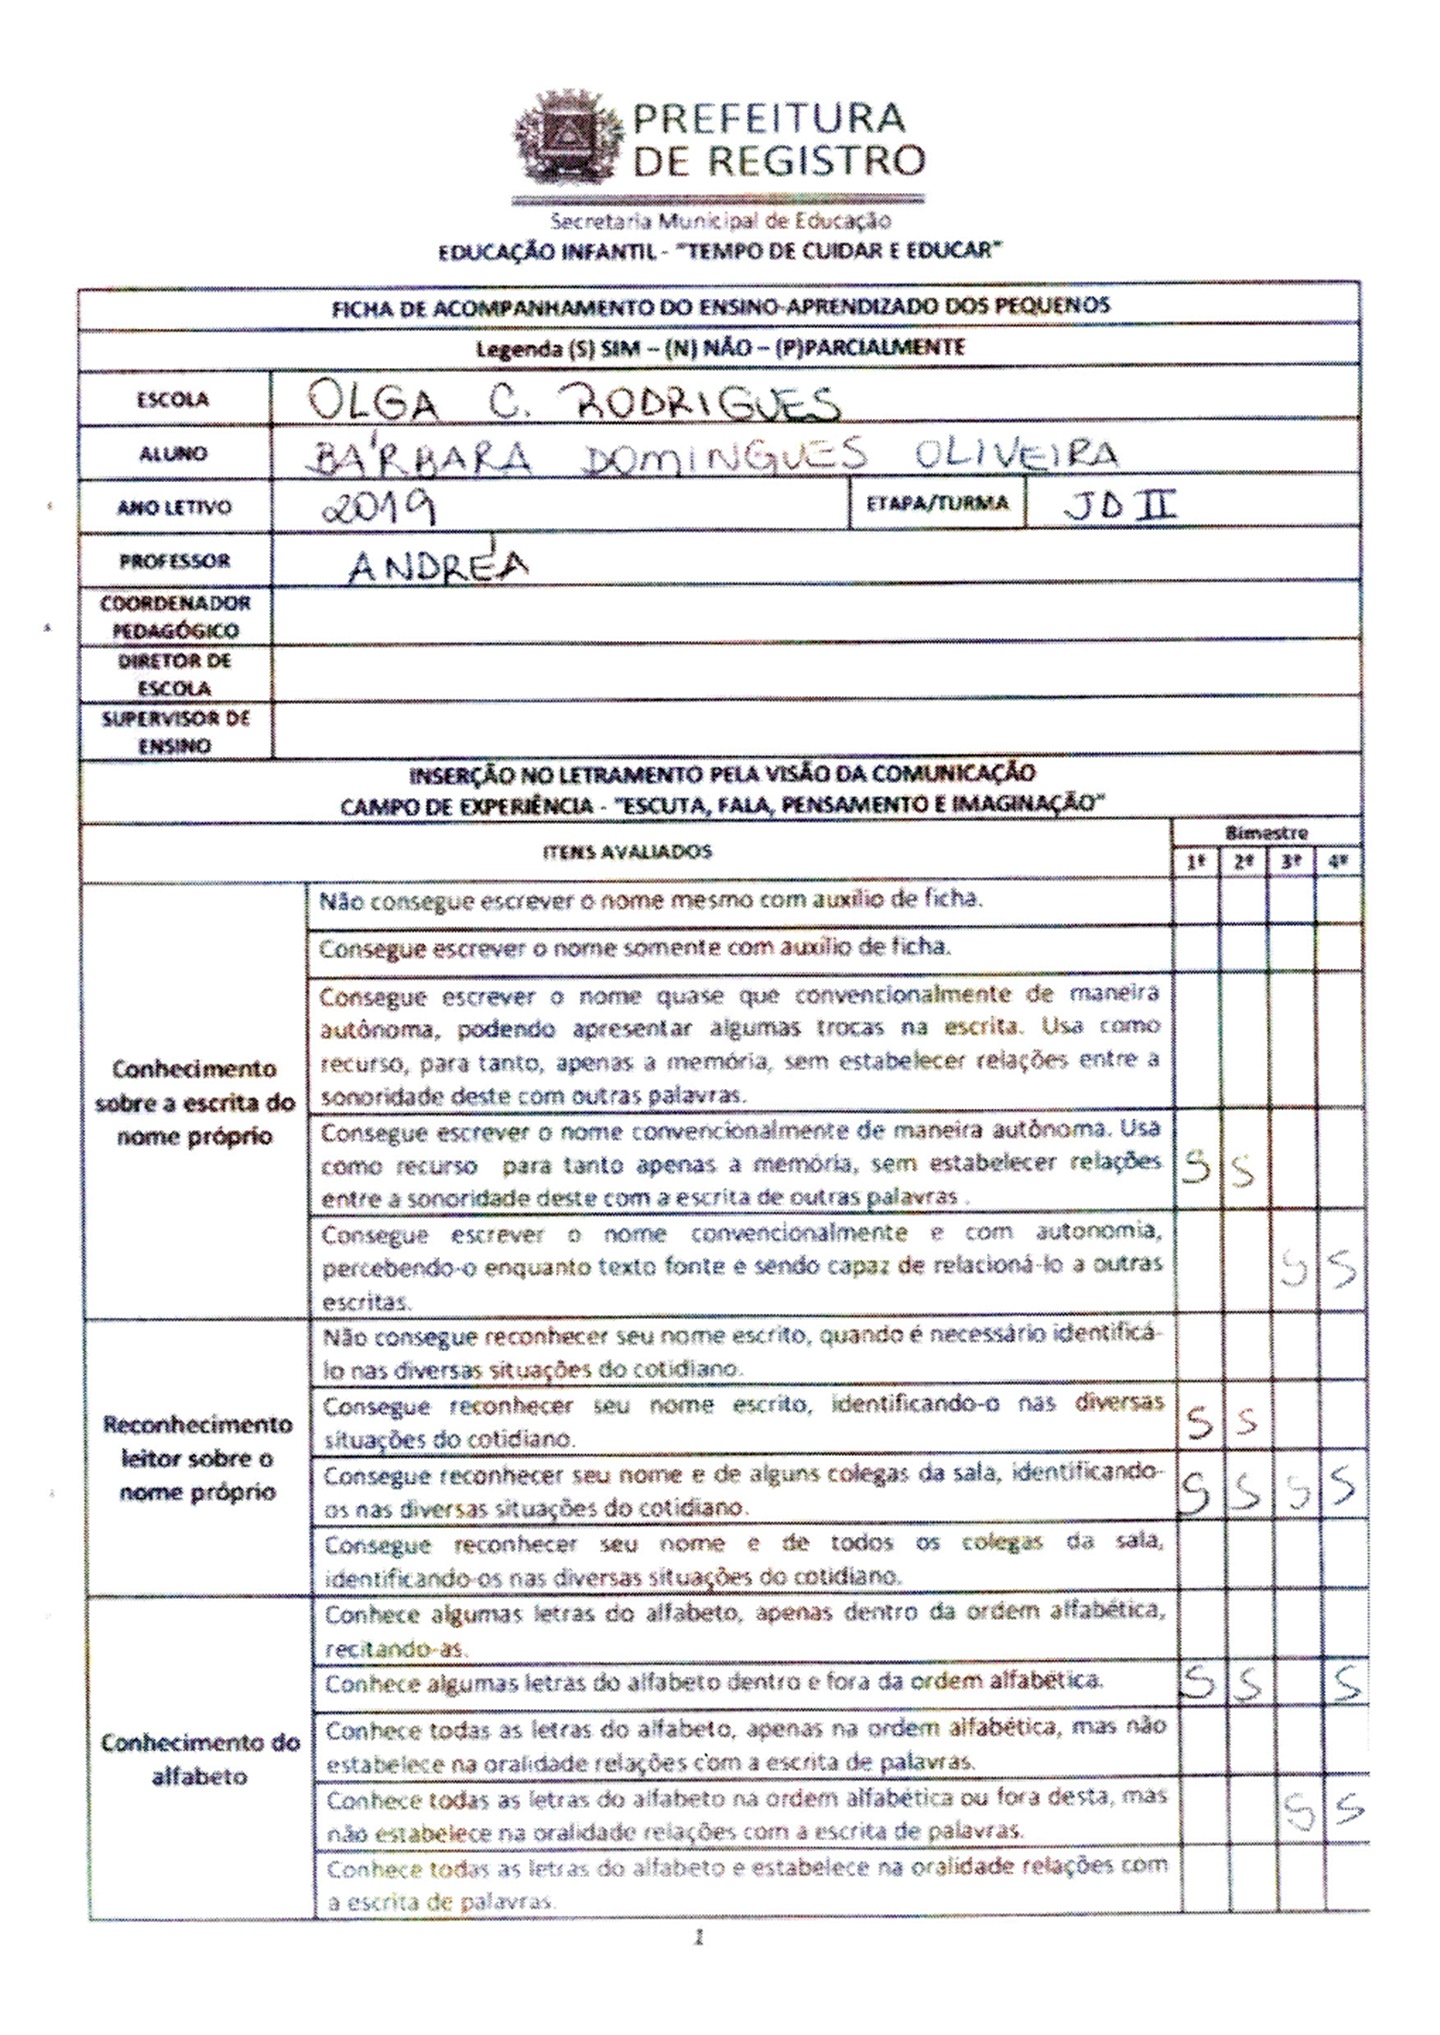 PREFEITURA
DE REGISTRO
Secretaria Municipal de Educação
EDUCAÇÃO INFANTIL - "TEMPO DE CUIDAR E EDUCAR"
FICHA DE ACOMPANHAMENTO DO ENSINO-APRENDIZADO DOS PEQUENOS
Legenda (S) SIM – (N) NÃO – (P)PARCIALMENTE
ESCOLA OLGA C. RODRIGUES
ALUNO BÁRBARA DOMINGUES OLIVEIRA
ANO LETIVO 2019 ETAPA/TURMA JD II
PROFESSOR ANDRÉA
COORDENADOR
PEDAGÓGICO
DIRETOR DE
ESCOLA
SUPERVISOR DE
ENSINO
INSERÇÃO NO LETRAMENTO PELA VISÃO DA COMUNICAÇÃO
CAMPO DE EXPERIÊNCIA - "ESCUTA, FALA, PENSAMENTO E IMAGINAÇÃO"
ITENS AVALIADOS
Bimestre
1º 2º 3º 4º
Conhecimento
sobre a escrita do
nome próprio
Não consegue escrever o nome mesmo com auxílio de ficha.
Consegue escrever o nome somente com auxílio de ficha.
Consegue escrever o nome quase que convencionalmente de maneira
autônoma, podendo apresentar algumas trocas na escrita. Usa como
recurso, para tanto, apenas a memória, sem estabelecer relações entre a
sonoridade deste com outras palavras.
Consegue escrever o nome convencionalmente de maneira autônoma. Usa
como recurso para tanto apenas a memória, sem estabelecer relações
entre a sonoridade deste com a escrita de outras palavras .
S S
Consegue escrever o nome convencionalmente e com autonomia,
percebendo-o enquanto texto fonte e sendo capaz de relacioná-lo a outras
escritas.
S S
Reconhecimento
leitor sobre o
nome próprio
Não consegue reconhecer seu nome escrito, quando é necessário identificá-
lo nas diversas situações do cotidiano.
Consegue reconhecer seu nome escrito, identificando-o nas diversas
situações do cotidiano.
S S
Consegue reconhecer seu nome e de alguns colegas da sala, identificando-
os nas diversas situações do cotidiano.
S S S S
Consegue reconhecer seu nome e de todos os colegas da sala,
identificando-os nas diversas situações do cotidiano.
Conhecimento do
alfabeto
Conhece algumas letras do alfabeto, apenas dentro da ordem alfabética,
recitando-as.
Conhece algumas letras do alfabeto dentro e fora da ordem alfabética.
S S S
Conhece todas as letras do alfabeto, apenas na ordem alfabética, mas não
estabelece na oralidade relações com a escrita de palavras.
Conhece todas as letras do alfabeto na ordem alfabética ou fora desta, mas
não estabelece na oralidade relações com a escrita de palavras.
S S
Conhece todas as letras do alfabeto e estabelece na oralidade relações com
a escrita de palavras.
1